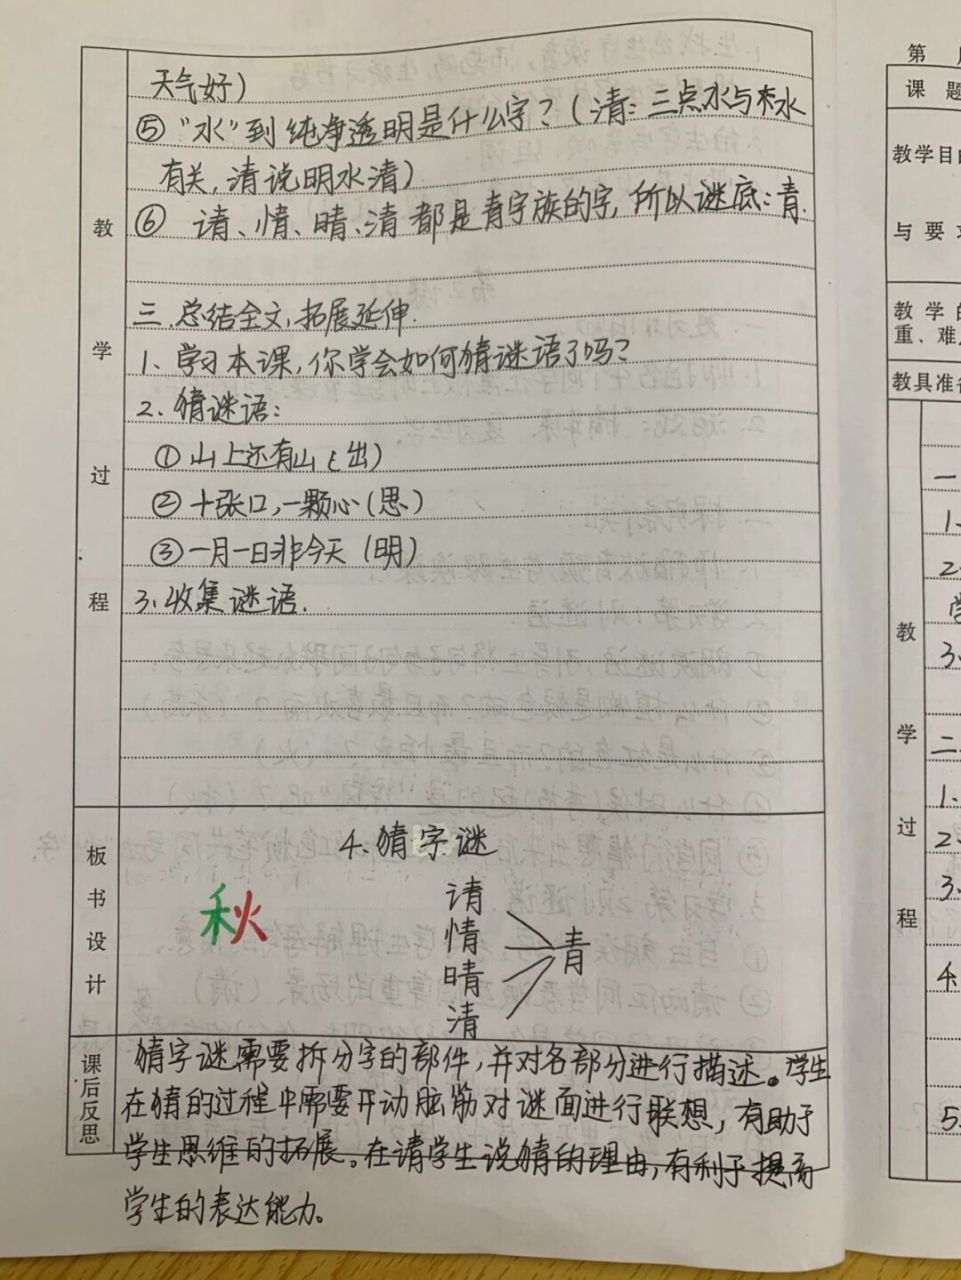 天气好)
⑤ "水"到纯净透明是什么字?(清:三点水与水
有关,清说明水清)
⑥ 请、情、晴、清都是青字族的字,所以谜底:青.
三.总结全文,拓展延伸.
1、学习本课,你学会如何猜谜语了吗?
2.猜谜语:
①山上还有山(出)
②十张口,一颗心(思)
③一月一日非今天(明)
3.收集谜语.
教学过程
板书设计
4.猜字谜
秋
请
情
晴
清
青
课后反思
猜字谜需要拆分字的部件,并对各部分进行描述。学生
在猜的过程中需要开动脑筋对谜面进行联想,有助于
学生思维的拓展。在请学生说猜的理由,有利于提高
学生的表达能力。
第
课题
教学目的
与要求
教学的
重、难
教具准备
教学过程
一
1.
2.
3.
二
1.
2.
3.
4.
5.